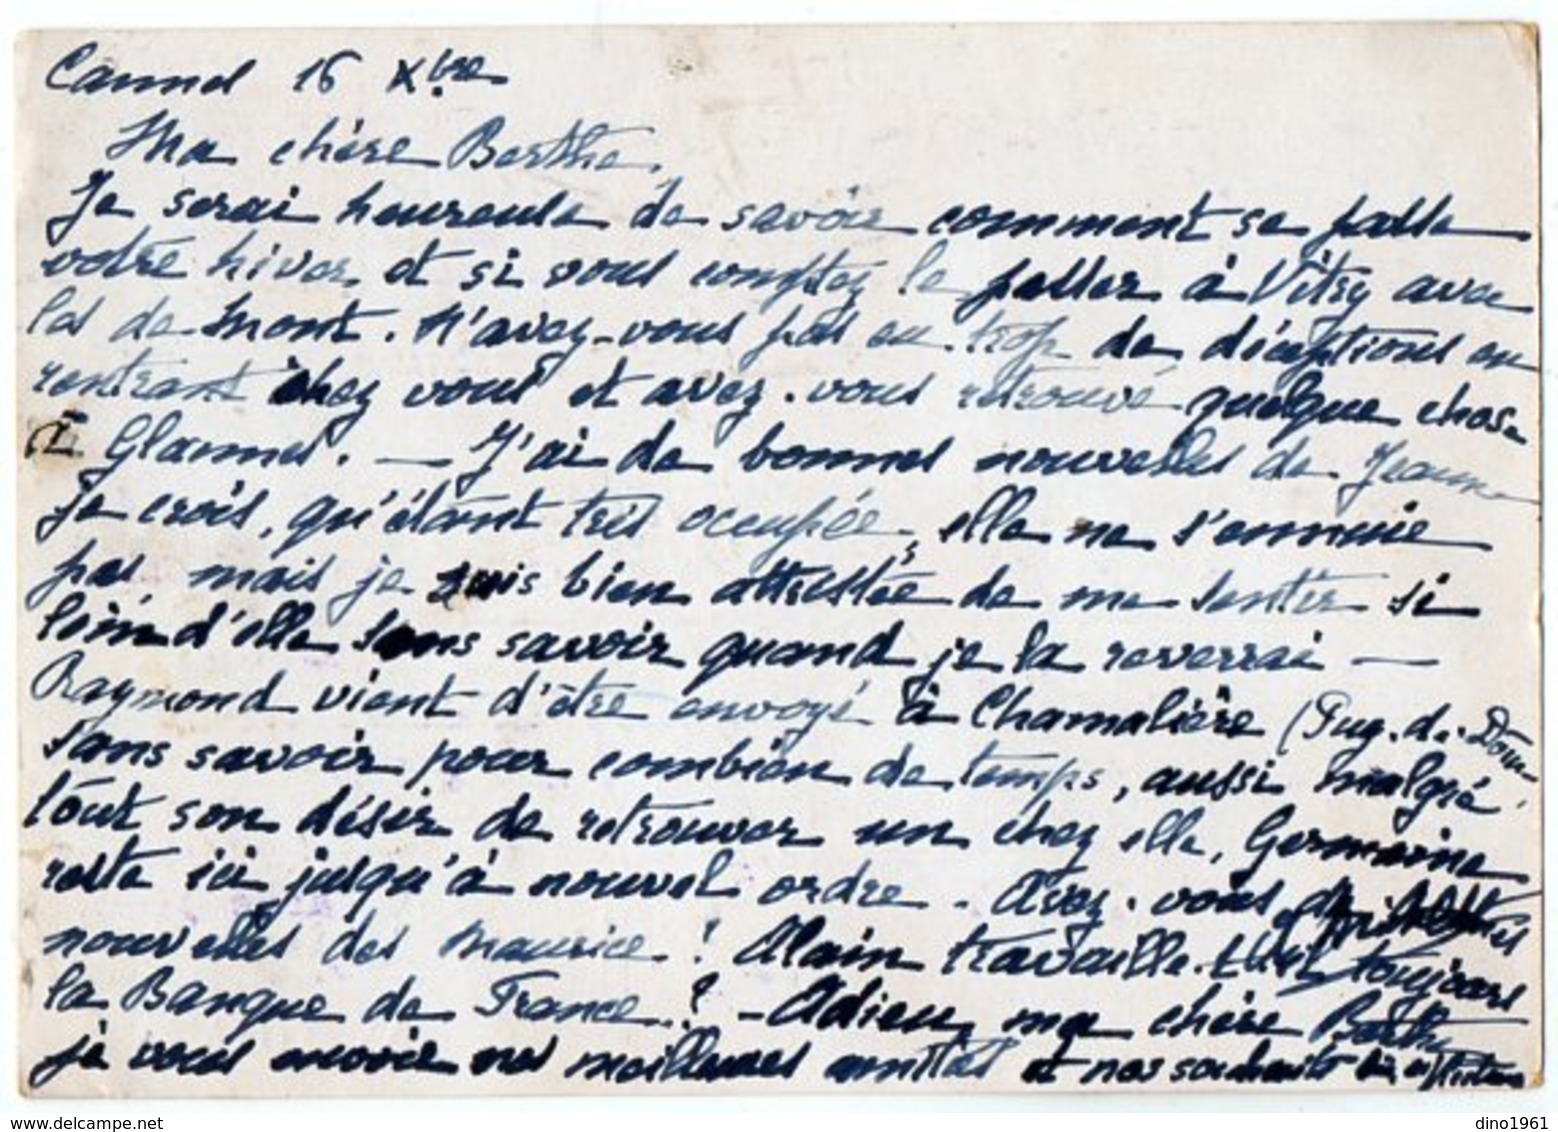 Cannes 16 Xbre
Ma chère Berthe,
Je serai heureuse de savoir comment se passe
votre hiver et si vous comptez le passer à Vitry avec
les de Mont. N'avez-vous pas eu trop de déceptions en
rentrant chez vous et avez-vous retrouvé quelque chose
à Glannes. — J'ai de bonnes nouvelles de Jeanne
je crois, qu'étant très occupée, elle ne s'ennuie
pas mais je suis bien attristée de me sentir si
loin d'elle sans savoir quand je la reverrai —
Raymond vient d'être envoyé à Chamalière (Puy. de. Dôme
sans savoir pour combien de temps, aussi malgré
tout son désir de retrouver un chez elle, Germaine
reste ici jusqu'à nouvel ordre - Avez-vous de
nouvelles des Maurice ! Alain travaille-t-il toujours
la Banque de France ? - Adieu, ma chère Berthe
je vous envoie nos meilleures amitiés et nos souhaits
dino1961